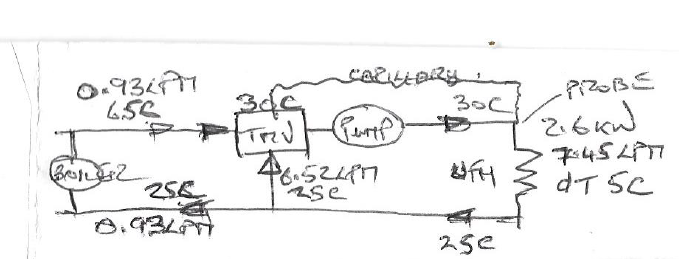 CAPILLARY
0.93LPM
65C
30C
30C
PROBE
TMV
PUMP
2.6KW
7.45LPM
dT 5C
BOILER
25C
6.52LPM
25C
UFH
0.93LPM
25C